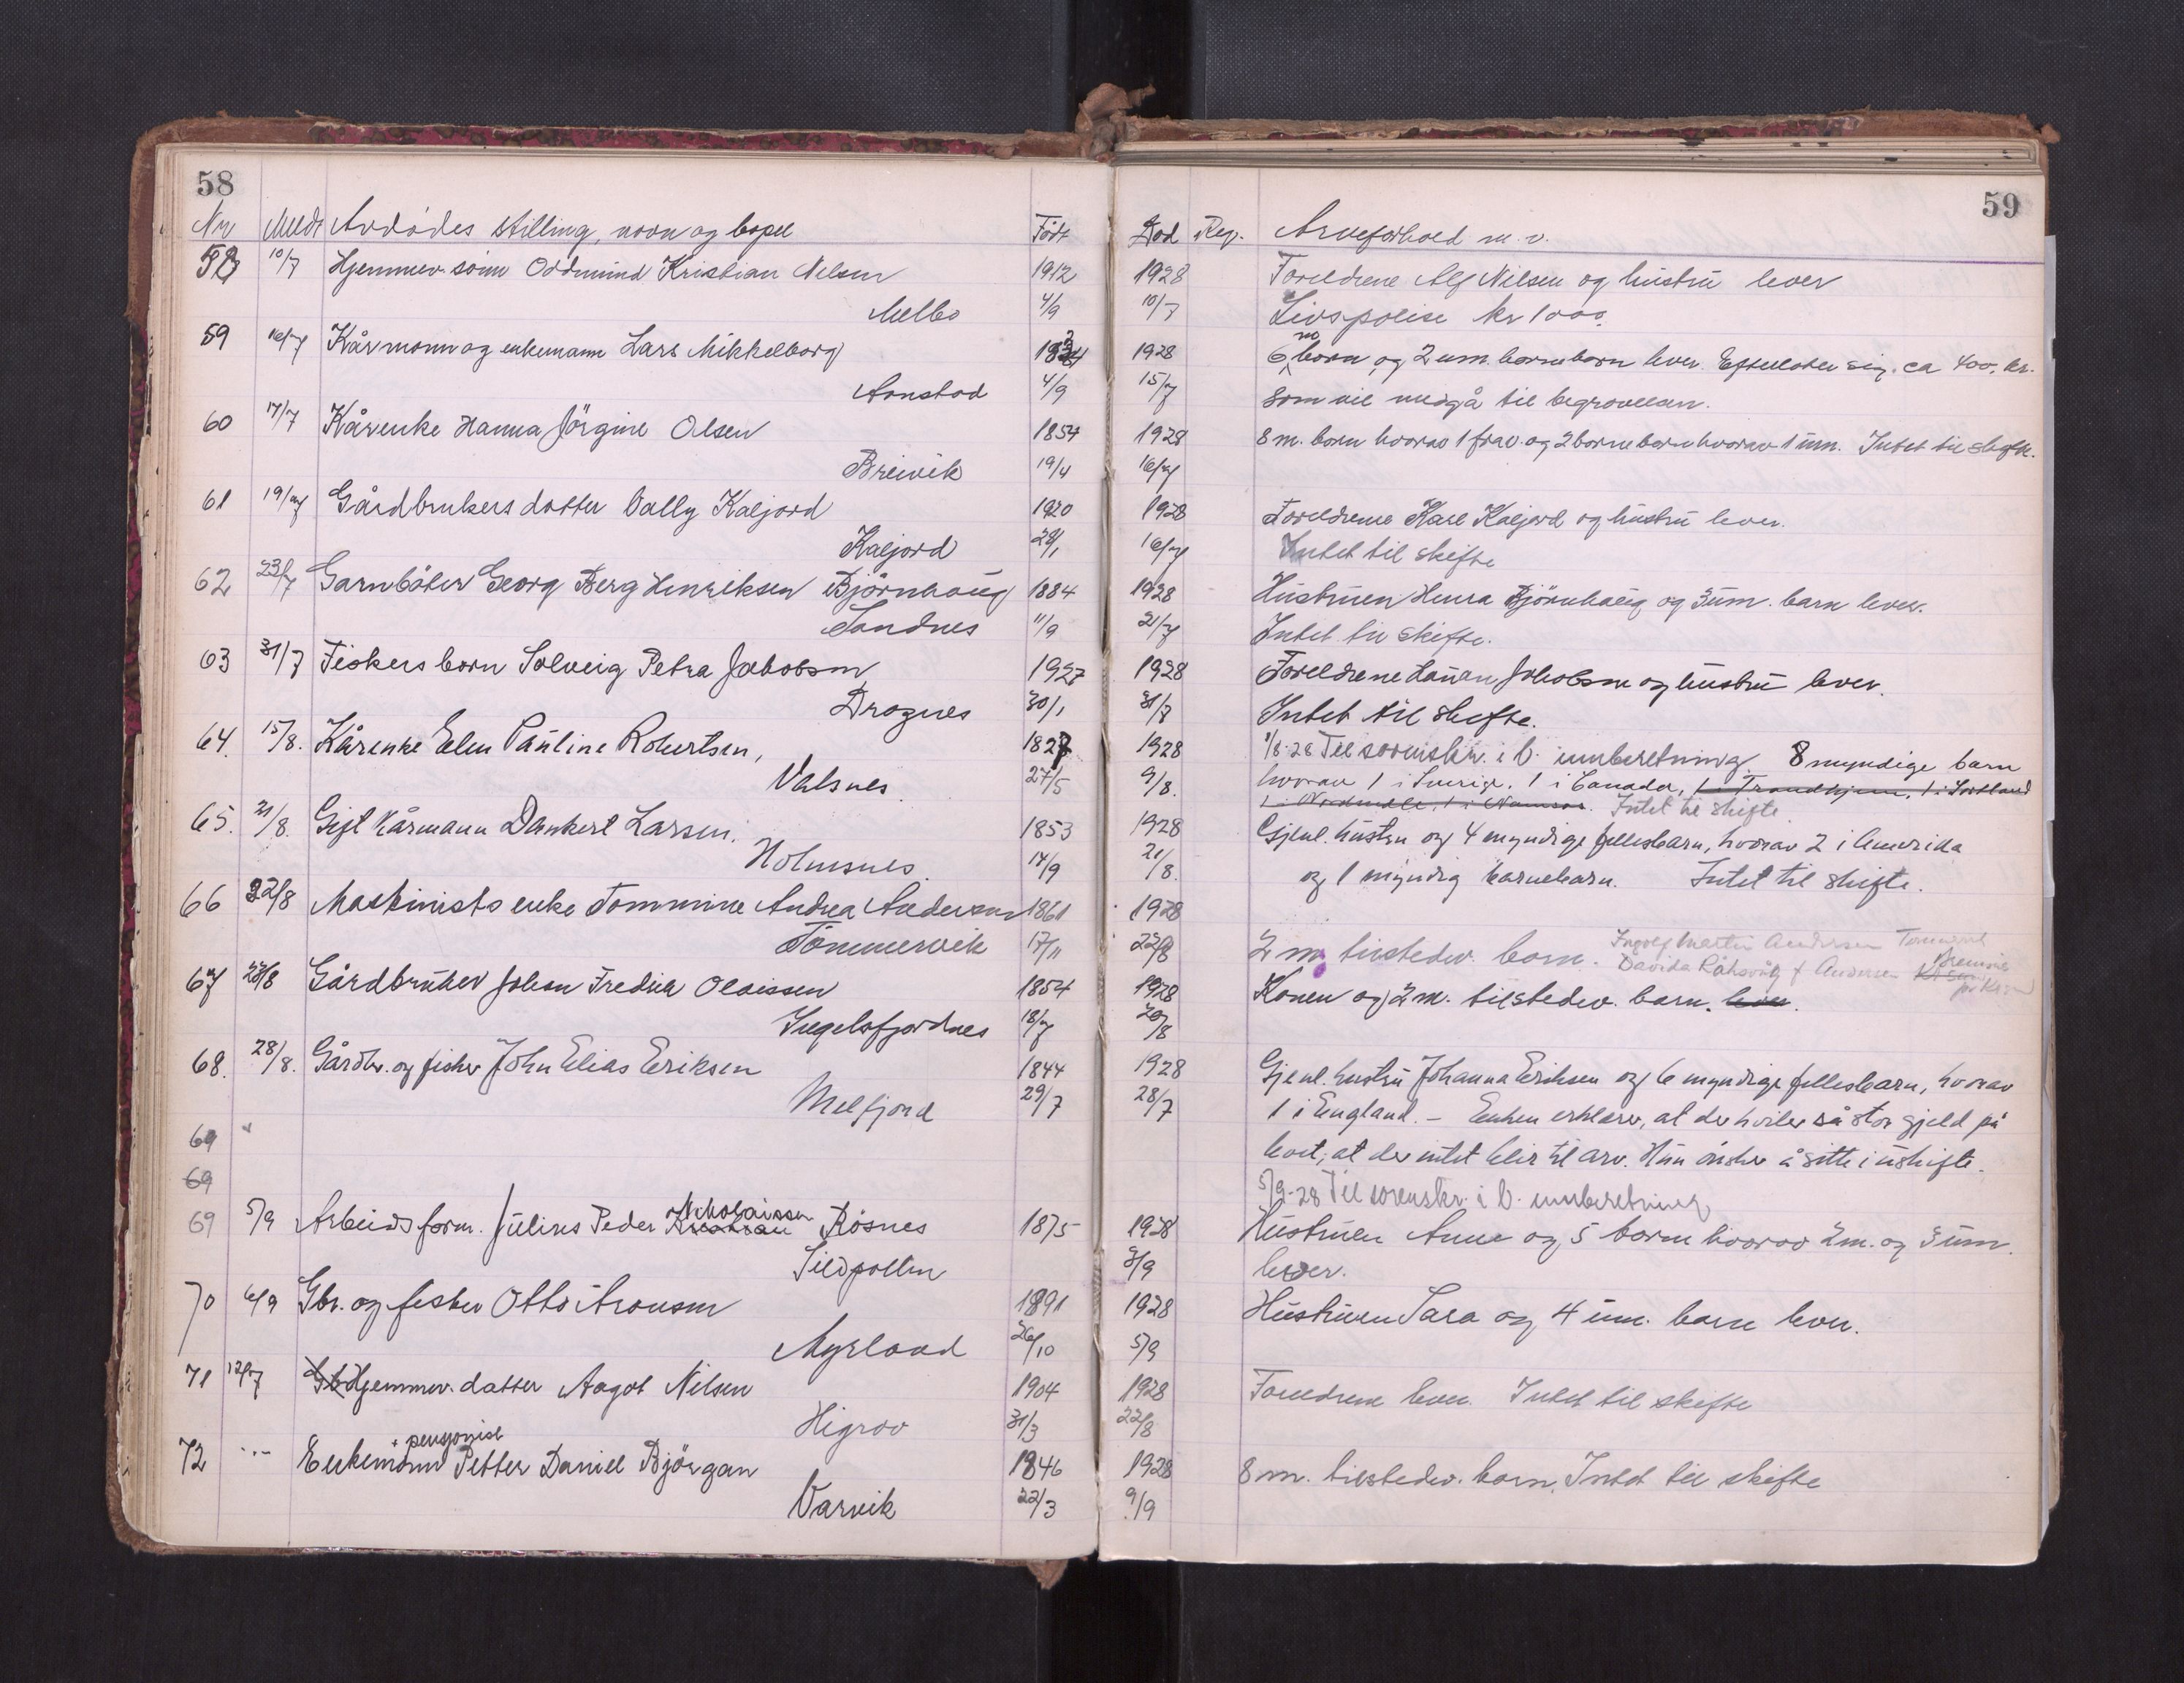 58
Nr Meldt Avdödes stilling, navn og bopel Födt
58 10/7 Hjemmev. sönn Oddmund Kristian Nilsen 1912
Melbo 4/9
59 16/7 Kårmann og enkemann Lars Mikkelborg
Annstad 4/9
60 17/7 Kårenke Hanna Jörgine Olsen 1854
Breivik 19/4
61 19/7 Gårdbrukers datter Vally Kaljord 1920
Kaljord 28/1
62 23/7 Garnböter Georg Berg Henriksen Björnhaug 1884
Sandnes 11/9
63 31/7 Fiskers barn Solveig Petra Jakobsen 1927
Dragnes 30/1
64. 15/8. Kårenke Elen Pauline Robertsen, 1827
Valsnes. 27/5
65. 21/8. Gift kårmann Dankert Larsen. 1853
Holmsnes. 14/9
66 22/8 Maskinists enke Tommine Andrea Andersen 1861
Tömmervik 17/11
67 23/8 Gårdbruker Johan Fredrik Olaissen 1854
Ingelsfjordnes 18/7
68. 28/8. Gårdbr. og fisker John Elias Eriksen 1844
Melfjord 29/7
69
69
Nikolaissen
69 5/9 Arbeids form. Julius Peder Kristian Rösnes 1875
Sildpollen
70 6/9 Gbr. og fisker Otto Aronsen 1891
Myrland 26/10
71 12/7 Gb Hjemmev. datter Aagot Nilsen 1904
Higrav 31/3
+ pensjonist
72 ... Enkemann Petter Daniel Björgan 1846
Varvik 22/3
59
Död Rep. Arveforhold m.v.
1928 Foreldrene Alf Nilsen og hustru lever
10/7 Livspolise kr 1000.
m
1928 6 barn og 2 um. barnebarn lever. Efterlater sig ca 400. kr.
15/7 som vil medgå til begravelsen.
1928 8 m. barn hvorav 1 frav. og 2 barnebarn hvorav 1 um. Intet til skifte.
16/7
1928 Foreldrene Karl Kaljord og hustru lever.
16/7 Intet til skifte
1928 Hustruen Björnhaug og 3 um. barn lever.
21/7 Intet til skifte.
1928 Foreldrene Jakobsen og hustru lever.
31/7 Intet til skifte.
1928 Til sorenskr. i V. innberetning. 8 myndige barn
9/8. hvorav 1 i Sverige, 1 i Canada, 1 i Trondhjem, 1 i Sortland
1 i Nordmöle, 1 i Namsos. Intet til skifte
1928 Gjenl. hustru og 4 myndige fellesbarn, hvorav 2 i Amerika
21/8. og 1 myndig barnebarn. Intet til skifte.
1928
22/8 2 m. tilstedev. barn. Ingolf Martin Andersen
Davida f. Andersen
1928 Konen og 2 m. tilstedev. barn. lever.
20/8
1928 Gjenl. hustru Johanna Eriksen og 6 myndige fellesbarn, hvorav
28/7 1 i England. – Enken erklærer, at der hviler så stor gjeld på
boet, at der intet blir til arv. Hun önsker å sitte i uskifte.
5/9-28 Til sorenskr. i V. innberetning
1928 Hustruen Anna og 5 barn hvorav 2 m. og 3 um.
3/9 lever.
1928 Hustruen Sara og 4 um. barn lever.
5/9
1928 Foreldrene lever. Intet til skifte
22/8
1928 8 m. tilstedev. barn. Intet til skifte
9/9